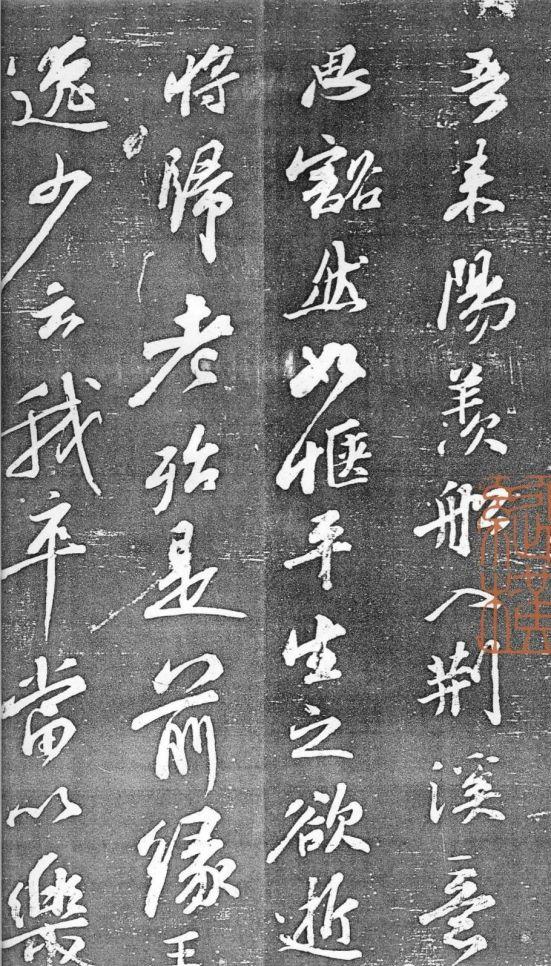 吾来陽羨船入荆溪意
思豁然如惬平生之欲逝
将歸老殆是前緣王
逸少云我卒當以樂